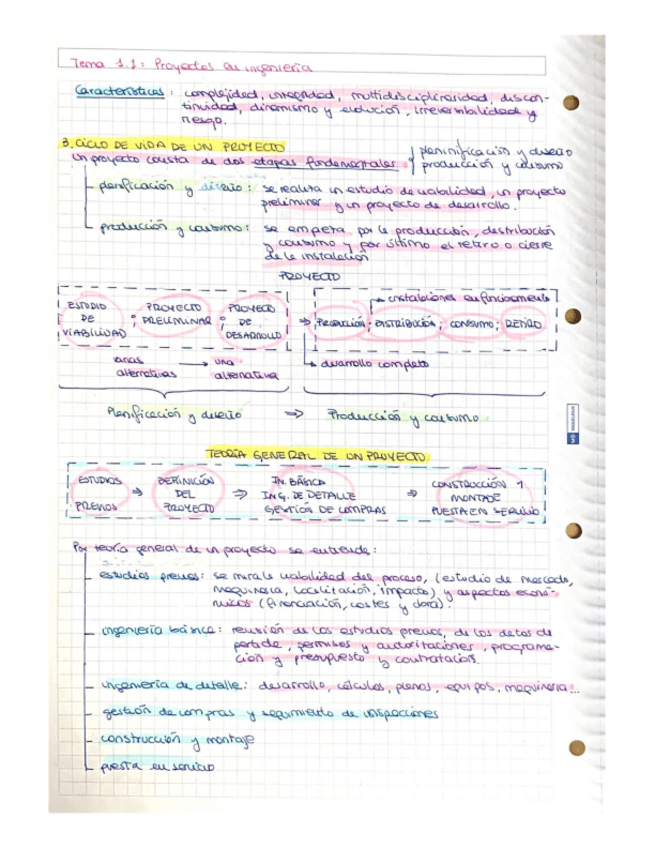 Tema 1.1: Proyectos en ingeniería
Características: complejidad, integridad, multidisciplinaridad, discon-
tinuidad, dinamismo y evolución, irreversibilidad y
riesgo.
3. CICLO DE VIDA DE UN PROYECTO
Un proyecto consta de dos etapas fundamentales: planinificación y diseño
producción y consumo
planificación y diseño: se realiza un estudio de viabilidad, un proyecto
preliminar y un proyecto de desarrollo.
producción y consumo: se empeza por la producción, distribución
y consumo y por último el retiro o cierre
de la instalación
PROYECTO
→ instalaciones en funcionamiento
ESTUDIO DE VIABILIDAD ; PROYECTO PRELIMINAR ; PROYECTO DE DESARROLLO ⇒ PRODUCCIÓN ; DISTRIBUCIÓN ; CONSUMO ; RETIRO
varias alternativas → una alternativa
→ desarrollo completo
Planificación y diseño ⇒ Producción y consumo
TEORÍA GENERAL DE UN PROYECTO
ESTUDIOS PREVIOS ⇒ DEFINICIÓN DEL PROYECTO ⇒ IN. BÁSICA ING. DE DETALLE GESTIÓN DE COMPRAS ⇒ CONSTRUCCIÓN Y MONTAJE PUESTA EN SERVICIO
Por teoría general de un proyecto se entiende:
estudios previos: se mira la viabilidad del proceso, (estudio de mercado,
maquinaria, localización, impacto) y aspectos econó-
micos (financiación, costes y dora).
ingeniería básica: revisión de los estudios previos, de los datos de
partida, permisos y autorizaciones, programa-
ción y presupuesto y contratación.
ingeniería de detalle: desarrollo, cálculos, planos, equipos, maquinaria...
gestión de compras y seguimiento de inspecciones
construcción y montaje
puesta en servicio